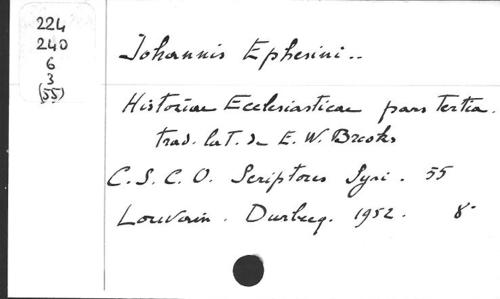 224
240
6
3
(55)
Johannis Ephesini..
Historiae Ecclesiasticae pars tertia.
trad. lat. de E. W. Brooks
C. S. C. O. Scriptores Syri. 55
Louvain. Durbecq. 1952. 8°